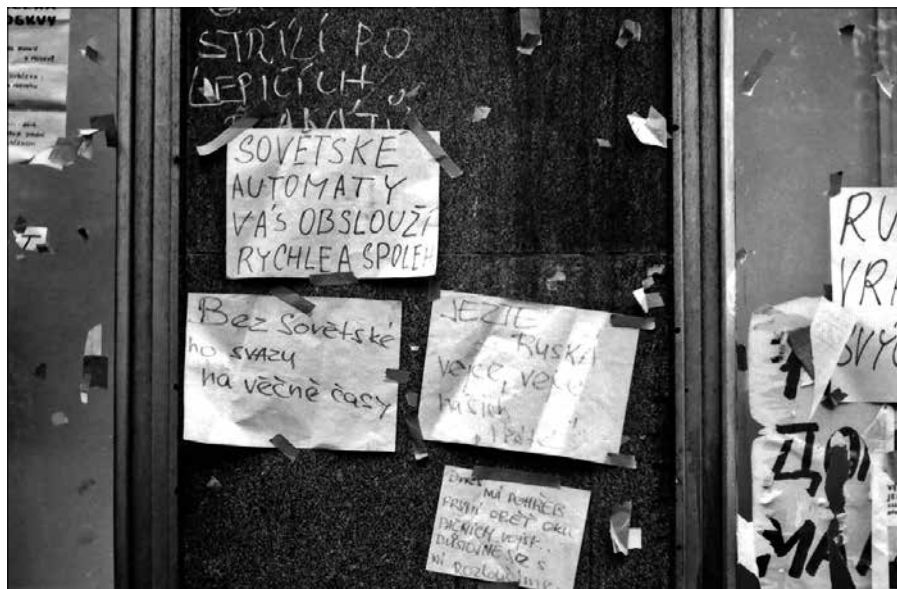 OSKVY
STŘÍLÍ PO
LEPIČÍCH
SOVĚTSKÉ
AUTOMATY
VÁS OBSLOUŽÍ
RYCHLE A SPOLEH
Bez Sovětské
ho svazu
na věčné časy
JEZTE
RUSKÁ
vejce,
našich
DNES
MÁ POHŘEB
PRVNÍ OBĚŤ OKU
PAČNÍCH VOJSK.
DŮSTOJNĚ SE S
NÍ ROZLOUČÍME
RU
VRA
SVÝC
ДОМ
МА